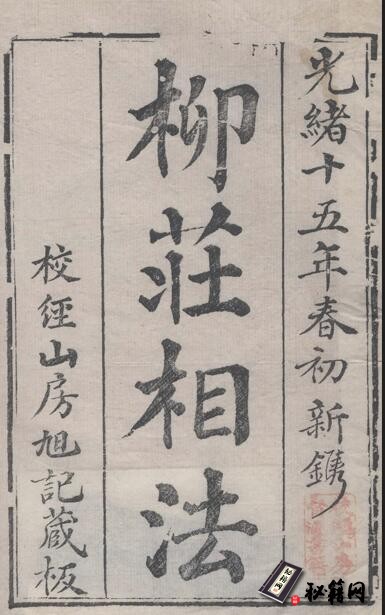 光緒十五年春初新鐫
柳莊相法
校經山房旭記藏板
秘籍网